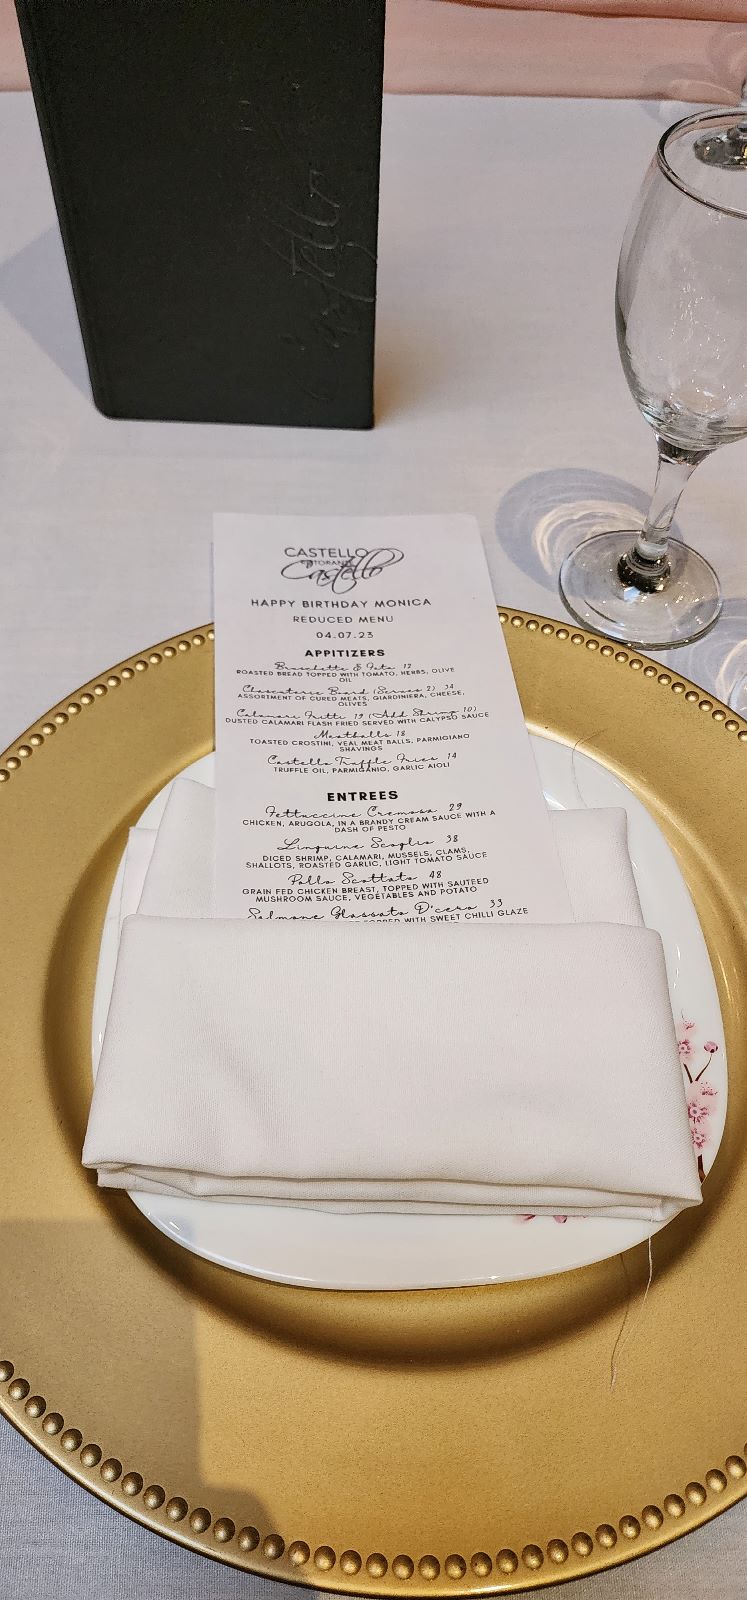 Castello
CASTELLO
RISTORANTE
Castello
HAPPY BIRTHDAY MONICA
REDUCED MENU
04.07.23
APPITIZERS
Bruschette & Feta 12
ROASTED BREAD TOPPED WITH TOMATO, HERBS, OLIVE
OIL
Charcuterie Board (Serves 2) 34
ASSORTMENT OF CURED MEATS, GIARDINIERA, CHEESE,
OLIVES
Calamari Fritti 19 (Add Shrimp 10)
DUSTED CALAMARI FLASH FRIED SERVED WITH CALYPSO SAUCE
Meatballs 18
TOASTED CROSTINI, VEAL MEAT BALLS, PARMIGIANO
SHAVINGS
Castello Truffle Fries 14
TRUFFLE OIL, PARMIGANIO, GARLIC AIOLI
ENTREES
Fettuccine Cremosa 29
CHICKEN, ARUGOLA, IN A BRANDY CREAM SAUCE WITH A
DASH OF PESTO
Linguine Scoglio 38
DICED SHRIMP, CALAMARI, MUSSELS, CLAMS,
SHALLOTS, ROASTED GARLIC, LIGHT TOMATO SAUCE
Pollo Scottato 48
GRAIN FED CHICKEN BREAST, TOPPED WITH SAUTEED
MUSHROOM SAUCE, VEGETABLES AND POTATO
Salmone Glassato D'cero 33
TOPPED WITH SWEET CHILLI GLAZE